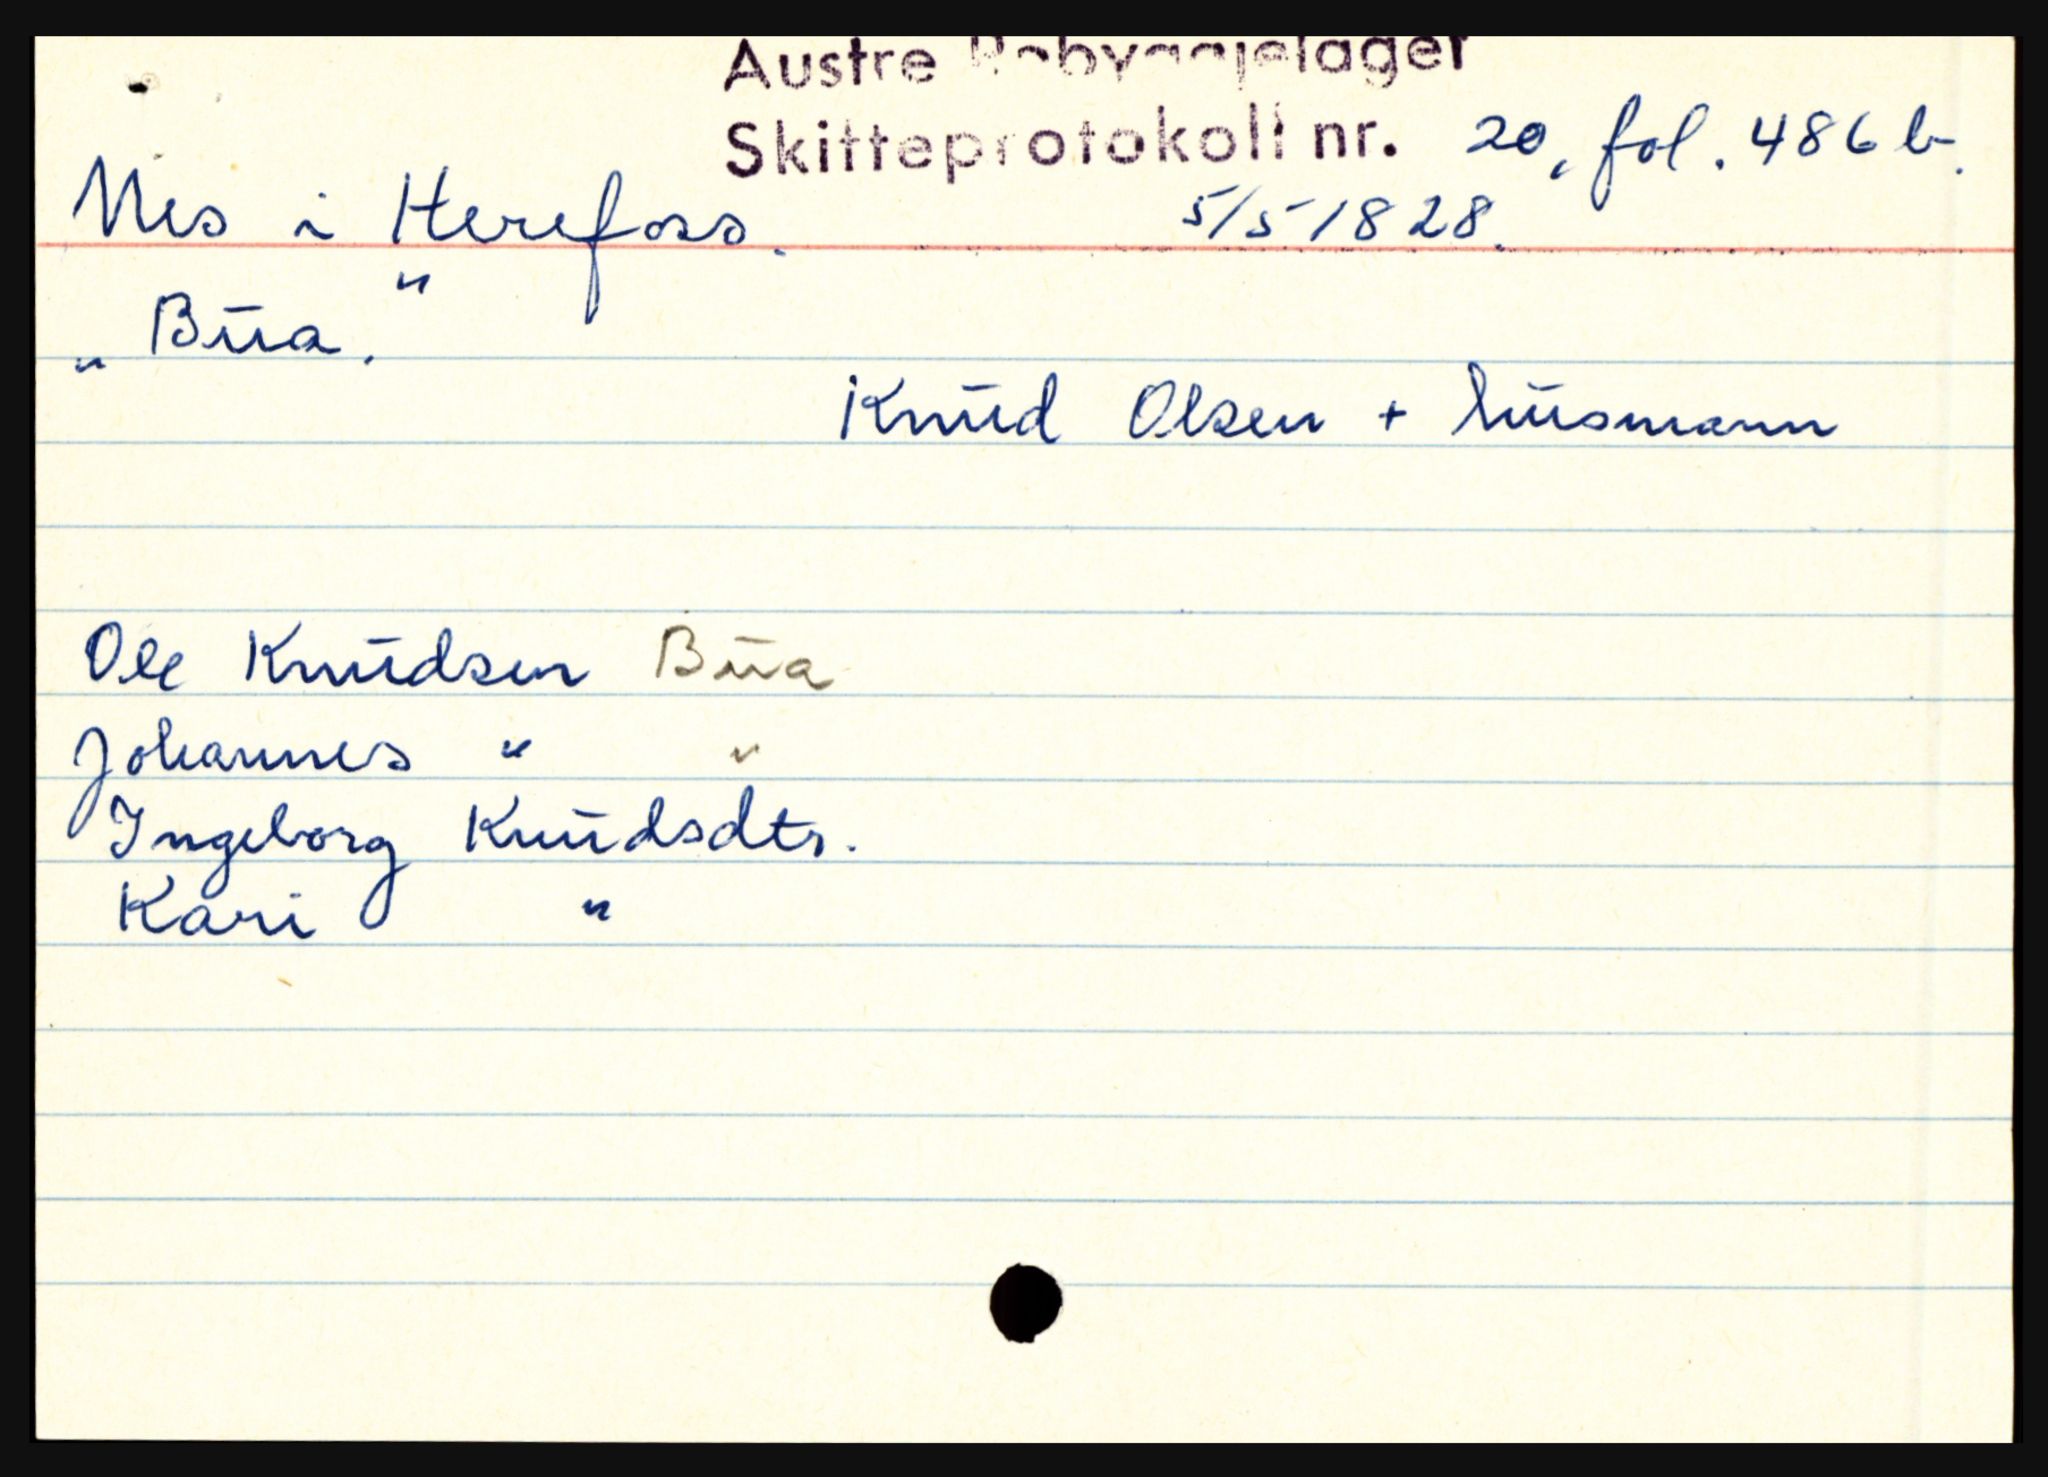 Austre Robyggjelager
Skifteprotokoll nr. 20, fol. 486 b.
Nes i Herefoss. 5/5 1828.
"
„ Bua.
Knud Olsen + husmann
Ole Knudsen Bua
Johannes " "
Ingeborg Knudsdtr.
Kari "